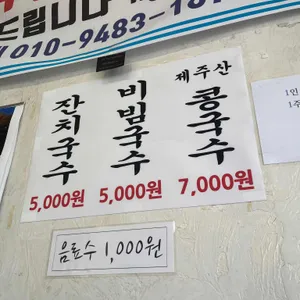 드립니다
010-9483-
잔치국수
5,000원
비빔국수
5,000원
제주산
콩국수
7,000원
1인
1주
음료수 1,000원